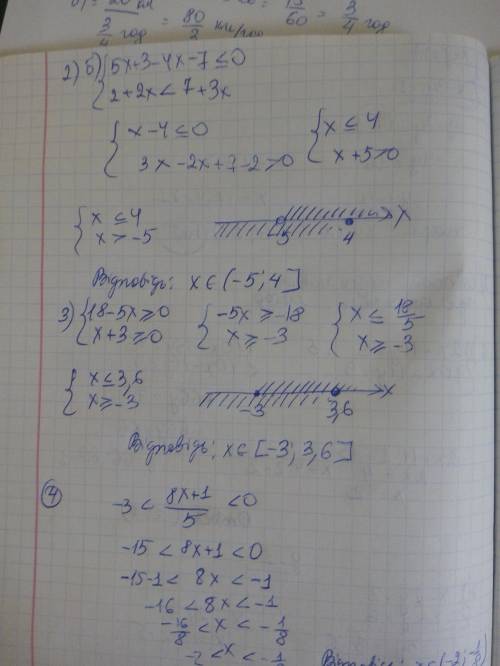 3/4 год = 80/2 км/год 15/60 = 3/4 год
2) б) { 5x+3-4x-7≤0
2+2x<7+3x
{ x-4≤0 { x≤4
3x-2x+7-2>0 x+5>0
{ x≤4
x>-5
-5 4 x
Відповідь: x∈(-5; 4]
3) { 18-5x≥0 { -5x≥-18 { x≤18/5
x+3≥0 x≥-3 x≥-3
{ x≤3,6
x≥-3
-3 3,6 x
Відповідь: x∈[-3; 3,6]
4
-3 < (8x+1)/5 < 0
-15 < 8x+1 < 0
-15-1 < 8x < -1
-16 < 8x < -1
-16/8 < x < -1/8
-2 < x < -1/8